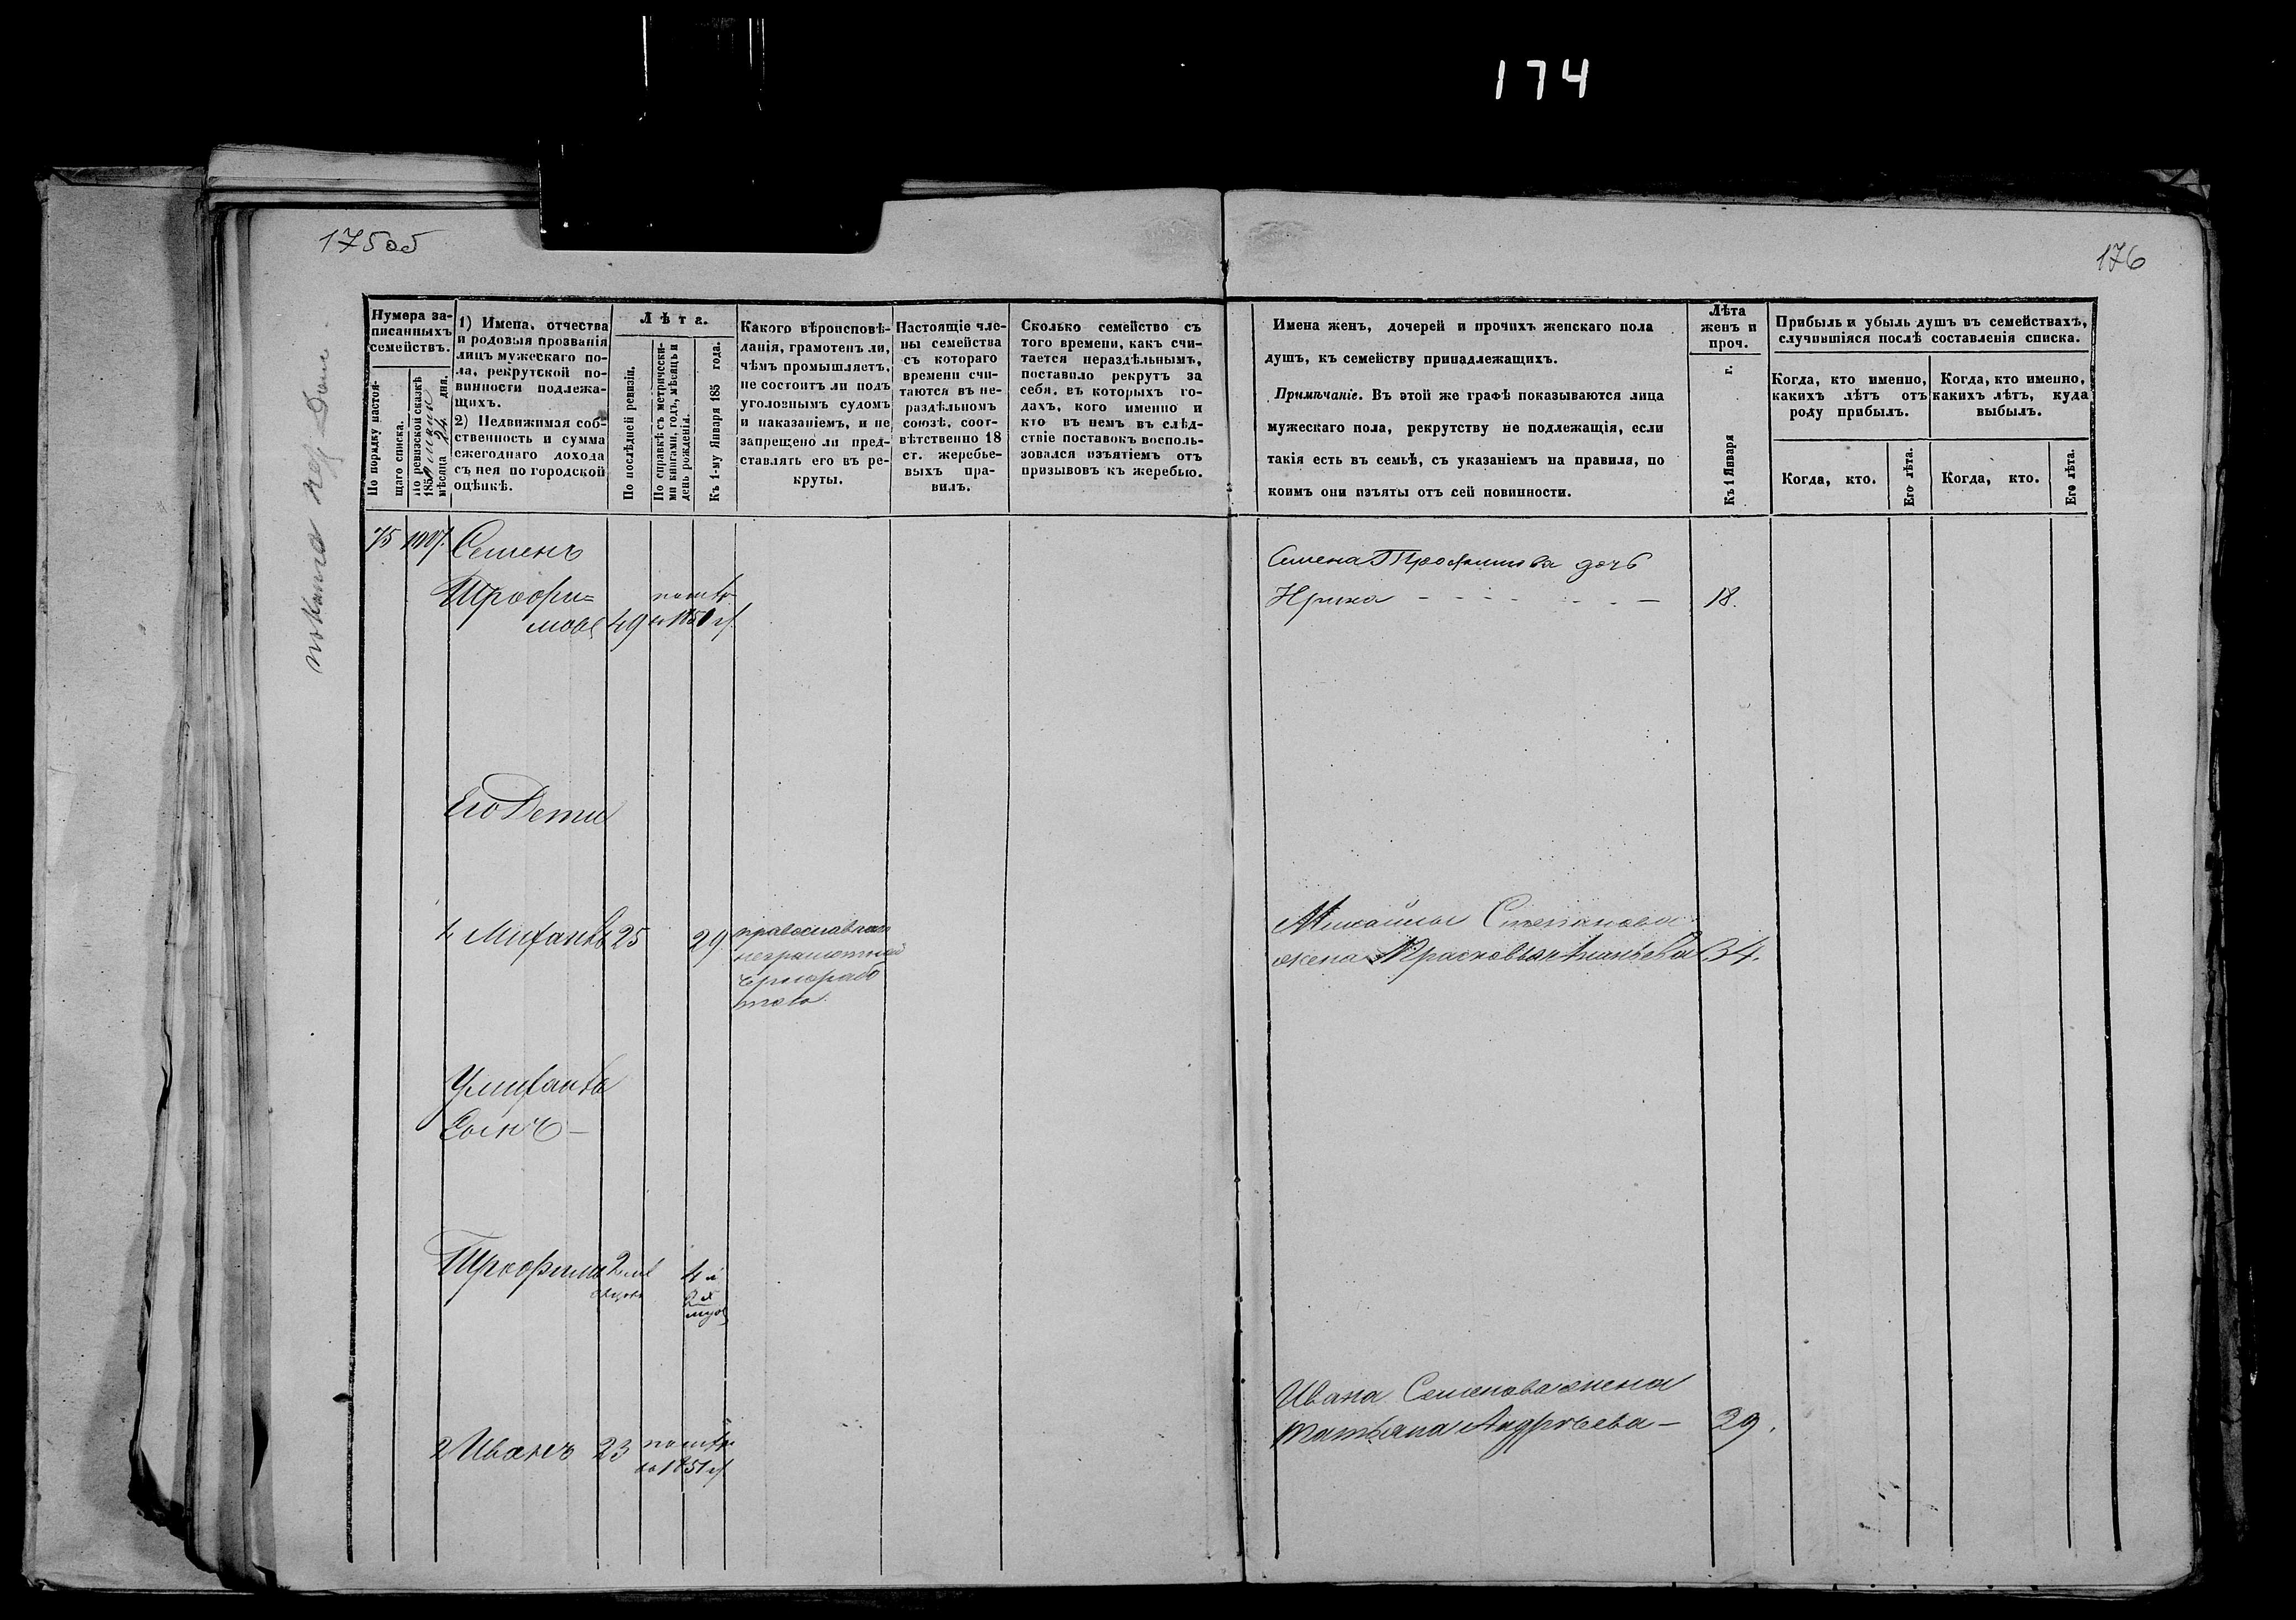 174
175об
176
Нумера за-
писанныхъ
семействъ.
По порядку настоя-
щаго списка.
По ревизской сказкѣ
1850
мѣсяца 24 дня.
1) Имена, отчества
и родовыя прозванія
лицъ мужескаго по-
ла, рекрутской по-
винности подлежа-
щихъ.
2) Недвижимая соб-
ственность и сумма
ежегоднаго дохода
съ нея по городской
оцѣнкѣ.
Лѣта.
По послѣдней ревизіи.
По справкѣ съ метрически-
ми книгами, годъ, мѣсяцъ и
день рожденія.
Къ 1-му Января 185 года.
Какого вѣроисповѣ-
данія, грамотенъ ли,
чѣмъ промышляетъ,
не состоитъ ли подъ
уголовнымъ судомъ
и наказаніемъ, и не
запрещено ли пред-
ставлять его въ ре-
круты.
Настоящіе чле-
ны семейства
съ котораго
времени счи-
таются въ не-
раздѣльномъ
союзѣ, соот-
вѣтственно 18
ст. жеребье-
выхъ пра-
вилъ.
Сколько семейство съ
того времени, какъ счи-
тается нераздѣльнымъ,
поставило рекрутъ за
себя, въ которыхъ го-
дахъ, кого именно и
кто въ немъ въ слѣд-
ствіе поставокъ восполь-
зовался изъятіемъ отъ
призывовъ къ жеребью.
Имена женъ, дочерей и прочихъ женскаго пола
душъ, къ семейству принадлежащихъ.
Примѣчаніе. Въ этой же графѣ показываются лица
мужескаго пола, рекрутству не подлежащія, если
такія есть въ семьѣ, съ указаніемъ на правила, по
коимъ они изъяты отъ сей повинности.
Лѣта
женъ и
проч.
Къ 1 Января г.
Прибыль и убыль душъ въ семействахъ,
случившіяся послѣ составленія списка.
Когда, кто именно,
какихъ лѣтъ отъ
роду прибылъ.
Когда, кто именно,
какихъ лѣтъ, куда
выбылъ.
Когда, кто.
Его лѣта.
Когда, кто.
Его лѣта.
75
Семенъ
Трофи=
мовъ 49
въ 1850 г.
Семена Трофимова дочь
Ирина - - - - - - - 18.
Его Дети
1. 25 29 православнаго
неграмотный
жена Прасковья 34.
Сынъ -
Трофимъ 2 4 и
Ивана Семенова жена
Татьяна Андреева - 29.
2 Иванъ 23
въ 1851 г.